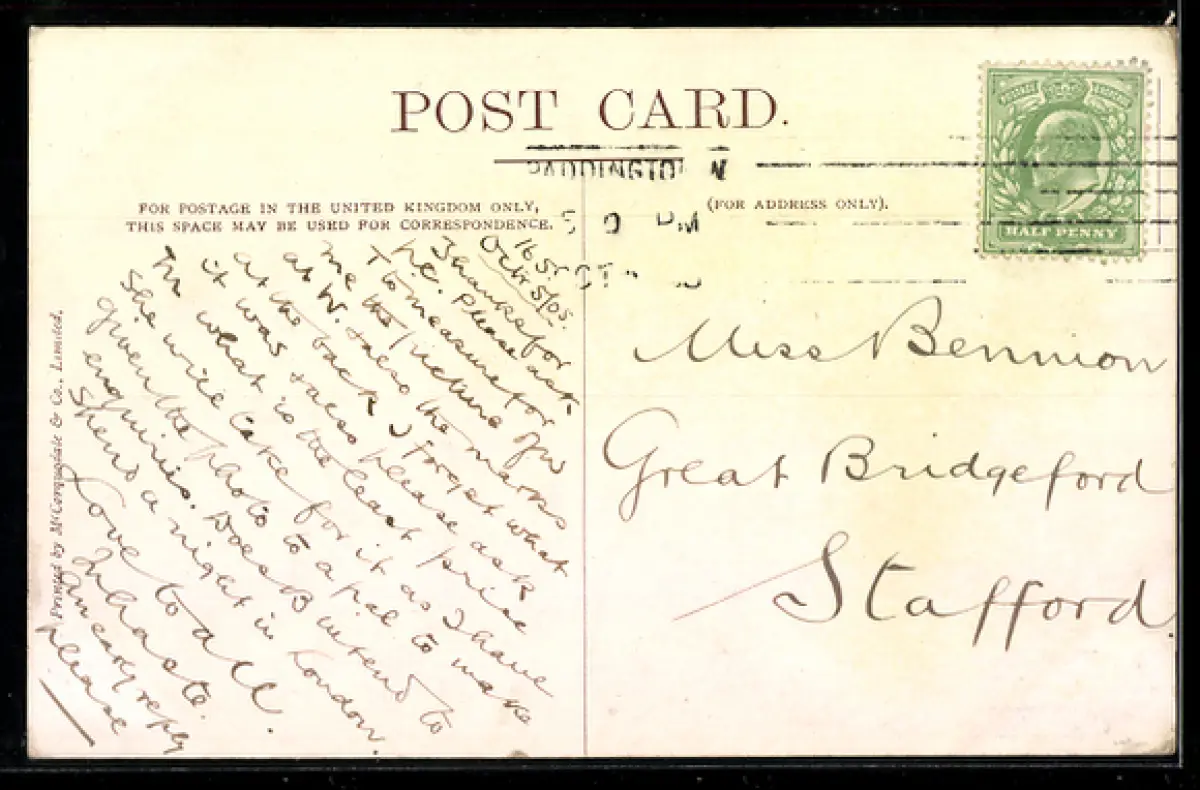 POST CARD.
PADDINGTON W
FOR POSTAGE IN THE UNITED KINGDOM ONLY,
THIS SPACE MAY BE USED FOR CORRESPONDENCE.
(FOR ADDRESS ONLY).
PM
HALF PENNY
Octr 5/05.
Thanks for
P.C. Please ask
to measure for
me the picture of
at W. & also the marks
at the back I forget what
it was & also please ask
what is the least price
she will take for it as I have
given the photo to a pal to make
enquiries. Does B intend to
spend a night in London.
Love to all.
In haste.
An early reply
please
Miss Bennion
Great Bridgeford
Stafford.
Printed by McCorquodale & Co., Limited.